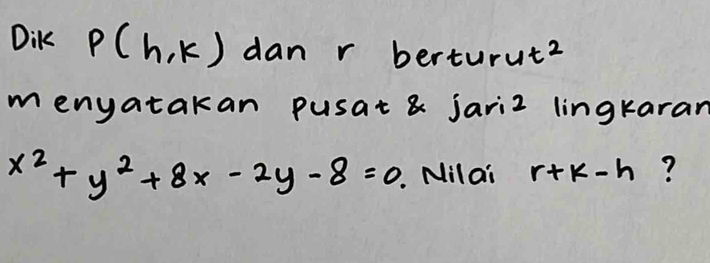 Dik P(h,k) dan r berturut²
menyatakan pusat & jari² lingkaran
x² + y² + 8x - 2y - 8 = 0. Nilai r+k-h ?